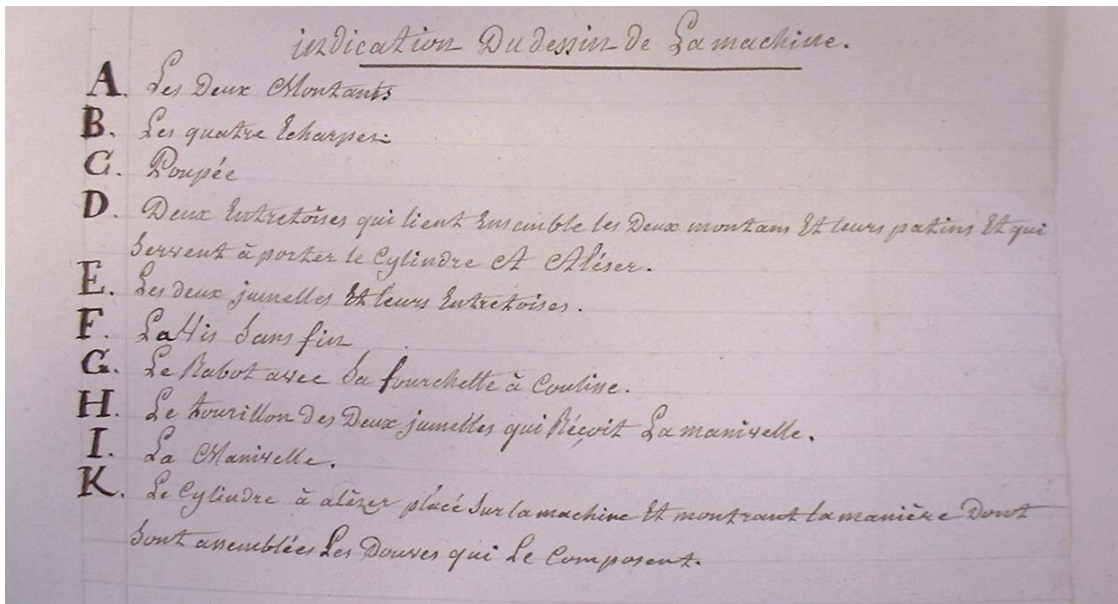 indication Du dessin de La machine.
A. Les Deux Montants
B. Les quatre Echarpes.
C. Poupée
D. Deux Entretoises qui lient Ensemble les Deux montans Et leurs patins Et qui
Servent à porter le Cylindre A Aléser.
E. Les deux jumelles Et leurs Entretoises.
F. La Vis Sans fin
G. Le Rabot avec Sa fourchette à Coulisse.
H. Le tourillon des Deux jumelles qui Réçoit La manivelle.
I. La Manivelle.
K. Le Cylindre à aléser placé Sur la machine Et montrant la manière Dont
Sont assemblées Les Douves qui Le Composent.